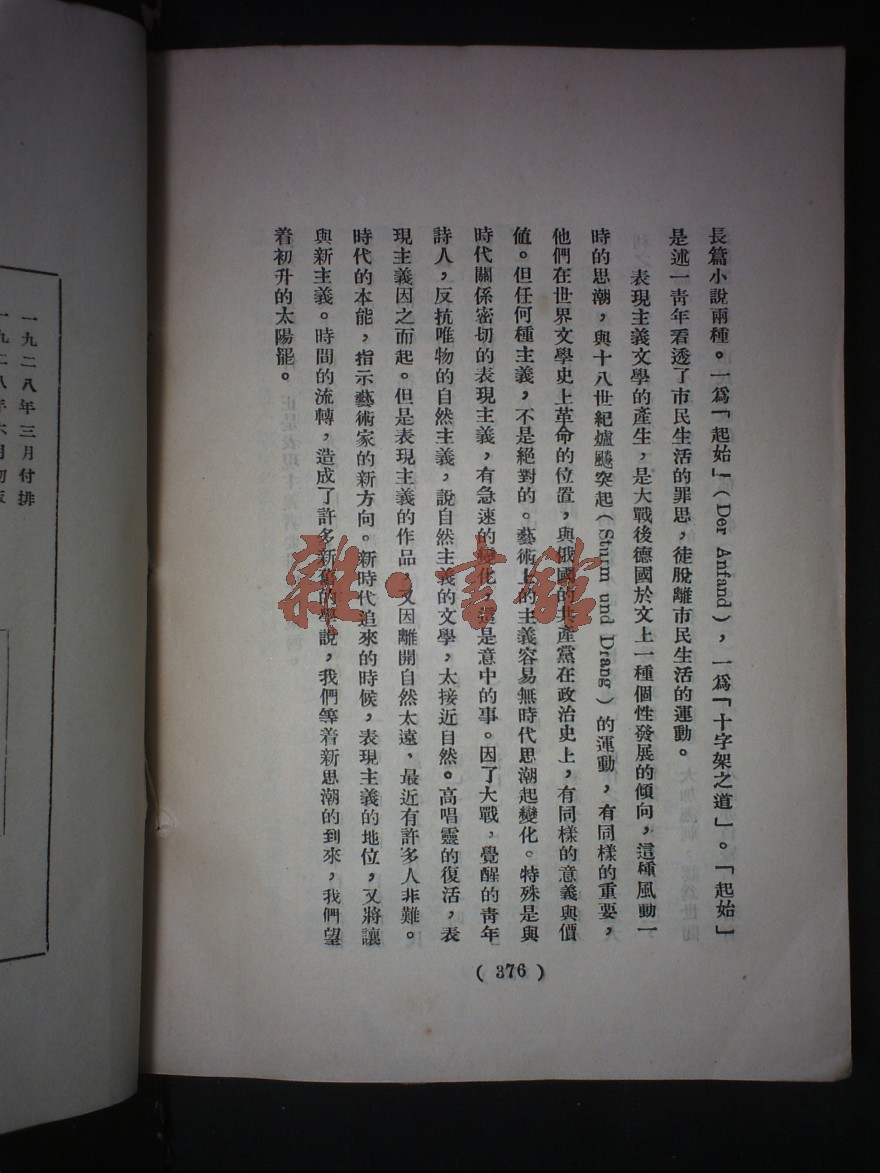 長篇小說兩種。一爲「起始」(Der Anfand)，一爲「十字架之道」。「起始」
是述一青年看透了市民生活的罪思，徒脫離市民生活的運動。
表現主義文學的產生，是大戰後德國於文上一種個性發展的傾向，這種風動一
時的思潮，與十八世紀爐飈突起(Sturm und Drang)的運動，有同樣的重要，
他們在世界文學史上革命的位置，與俄國的共產黨在政治史上，有同樣的意義與價
値。但任何種主義，不是絕對的。藝術上的主義容易無時代思潮起變化。特殊是與
時代關係密切的表現主義，有急速的變化，這是意中的事。因了大戰，覺醒的靑年
詩人，反抗唯物的自然主義，說自然主義的文學，太接近自然。高唱靈的復活，表
現主義因之而起。但是表現主義的作品，又因離開自然太遠，最近有許多人非難。
時代的本能，指示藝術家的新方向。新時代追來的時候，表現主義的地位，又將讓
與新主義。時間的流轉，造成了許多新舊的學說，我們等着新思潮的到來，我們望
着初升的太陽罷。
(376)
雜·書館
一九二八年三月付排
一九二八年六月初版